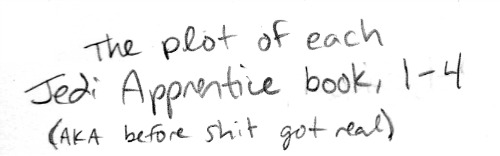 The plot of each
Jedi Apprentice book, 1-4
(AKA before shit got real)